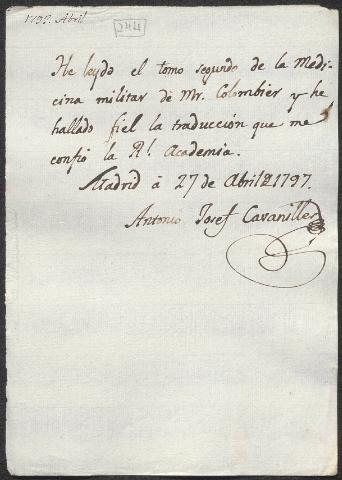 1797. Abril
244
He leydo el tomo segundo de la Medi-
cina militar de Mr. Colombier y he
hallado fiel la traducción que me
confió la Rl. Academia.
Madrid á 27 de Abril 1797.
Antonio Josef Cavanilles